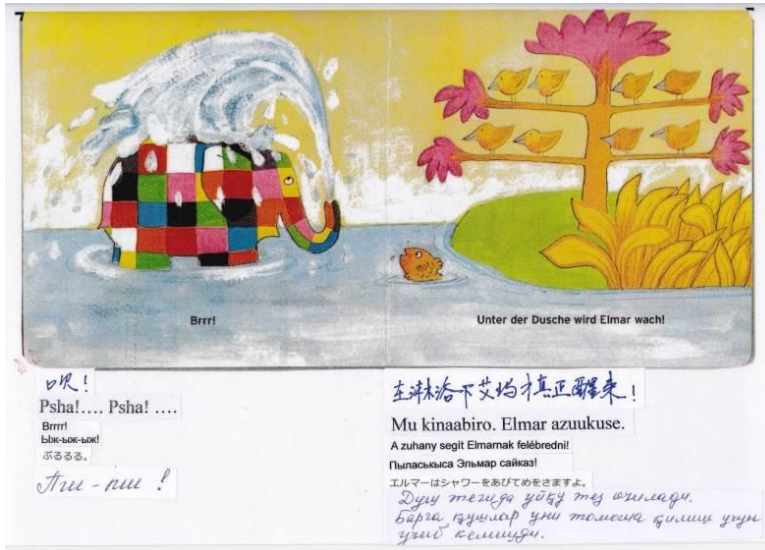 Brrr!
Unter der Dusche wird Elmar wach!
Psha!.... Psha! ....
Brrrr!
Ыж-ыж-ыж!
ぶるるる。
Пши - пши !
在淋浴下艾玛才真正醒来!
Mu kinaabiro. Elmar azuukuse.
A zuhany segít Elmarnak felébredni!
Пыласькыса Эльмар сайказ!
エルマーはシャワーをあびてめをさますよ。
Душ тегида уйқу тез очилади.
Барча қушлар уни томоша қилиш учун
учиб келишди.